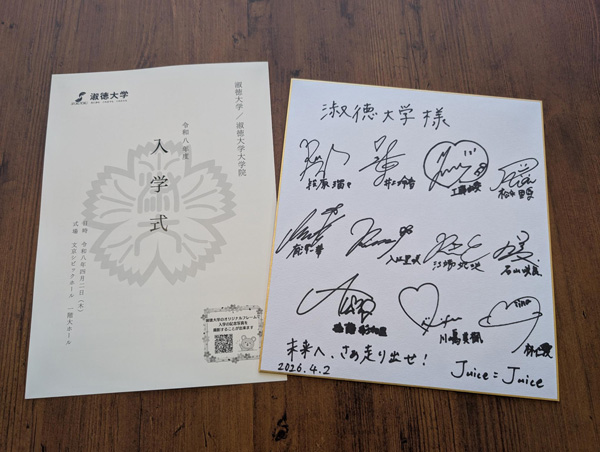 淑徳大学
淑徳大学／淑徳大学大学院
令和八年度
入学式
日時 令和八年四月二日（木）
式場 文京シビックホール 大ホール
淑徳大学のオリジナルフレームで
入学の記念写真を
撮影することが出来ます
淑徳大学様
段原瑠々
井上玲音
工藤由愛
松永里愛
入江里咲
江端妃咲
石山咲良
遠藤彩加里
川嶋美楓
林仁愛
未来へ、さあ走り出せ！
2026.4.2
Juice=Juice